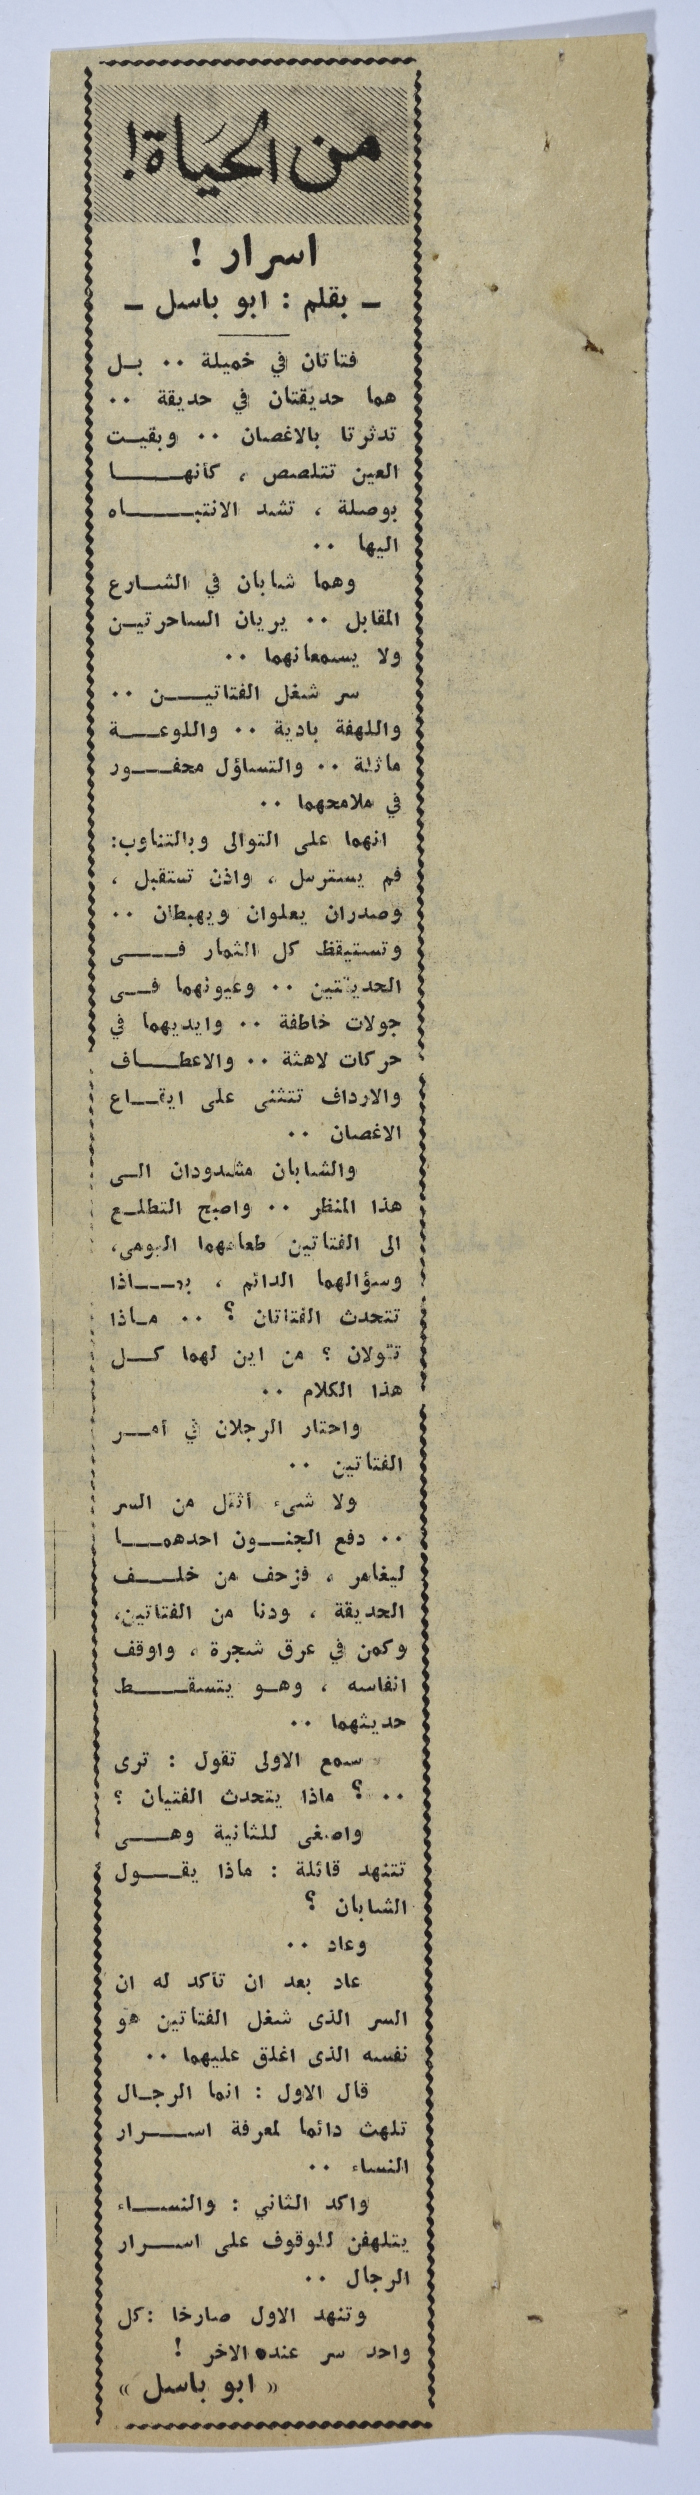 من الحياة!
اسرار !
ـ بقلم : ابو باسل ـ
فتاتان في خميلة .. بل
هما حديقتان في حديقة ..
تدثرتا بالاغصان .. وبقيت
العين تتلصص ، كأنها
بوصلة ، تشد الانتباه
اليها ..
وهما شابان في الشارع
المقابل .. يريان الساحرتين
ولا يسمعانهما ..
سر شغل الفتاتين ..
واللهفة بادية .. واللوعة
ماثلة .. والتساؤل محفور
في ملامحهما ..
انهما على التوالى وبالتناوب:
فم يسترسل ، واذن تستقبل ،
وصدران يعلوان ويهبطان ..
وتستيقظ كل الثمار فى
الحديقتين .. وعيونهما فى
جولات خاطفة .. وايديهما في
حركات لاهثة .. والاعطاف
والارداف تتثنى على ايقاع
الاغصان ..
والشابان مشدودان الى
هذا المنظر .. واصبح التطلع
الى الفتاتين طعامهما اليومى،
وسؤالهما الدائم ، بماذا
تتحدث الفتاتان ؟ .. ماذا
تقولان ؟ من اين لهما كل
هذا الكلام ..
واحتار الرجلان في أمر
الفتاتين ..
ولا شىء أثقل من السر
.. دفع الجنون احدهما
ليغامر ، فزحف من خلف
الحديقة ، ودنا من الفتاتين،
وكمن في عرق شجرة ، واوقف
انفاسه ، وهو يتسقط
حديثهما ..
سمع الاولى تقول : ترى
.. ؟ ماذا يتحدث الفتيان ؟
واصغى للثانية وهى
تتنهد قائلة : ماذا يقول
الشابان ؟
وعاد ..
عاد بعد ان تأكد له ان
السر الذى شغل الفتاتين هو
نفسه الذى اغلق عليهما ..
قال الاول : انما الرجال
تلهث دائما لمعرفة اسرار
النساء ..
واكد الثاني : والنساء
يتلهفن للوقوف على اسرار
الرجال ..
وتنهد الاول صارخا :كل
واحد سر عنده الاخر !
« ابو باسل »